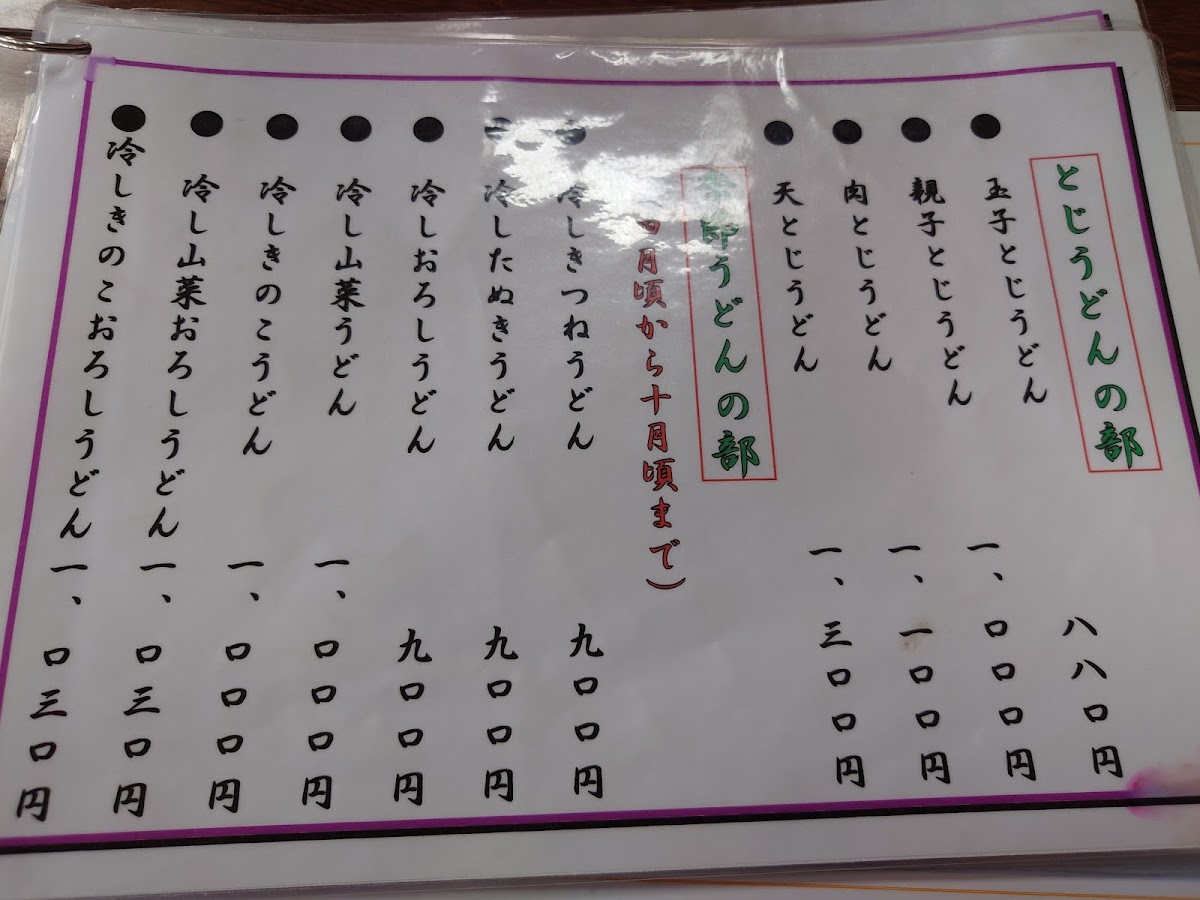 とじうどんの部
●玉子とじうどん 八八〇円
●親子とじうどん 一、〇〇〇円
●肉とじうどん 一、一〇〇円
●天とじうどん 一、三〇〇円
季節うどんの部
四月頃から十月頃まで）
●冷しきつねうどん 九〇〇円
●冷したぬきうどん 九〇〇円
●冷しおろしうどん 九〇〇円
●冷し山菜うどん 一、〇〇〇円
●冷しきのこうどん 一、〇〇〇円
●冷し山菜おろしうどん 一、〇三〇円
●冷しきのこおろしうどん 一、〇三〇円